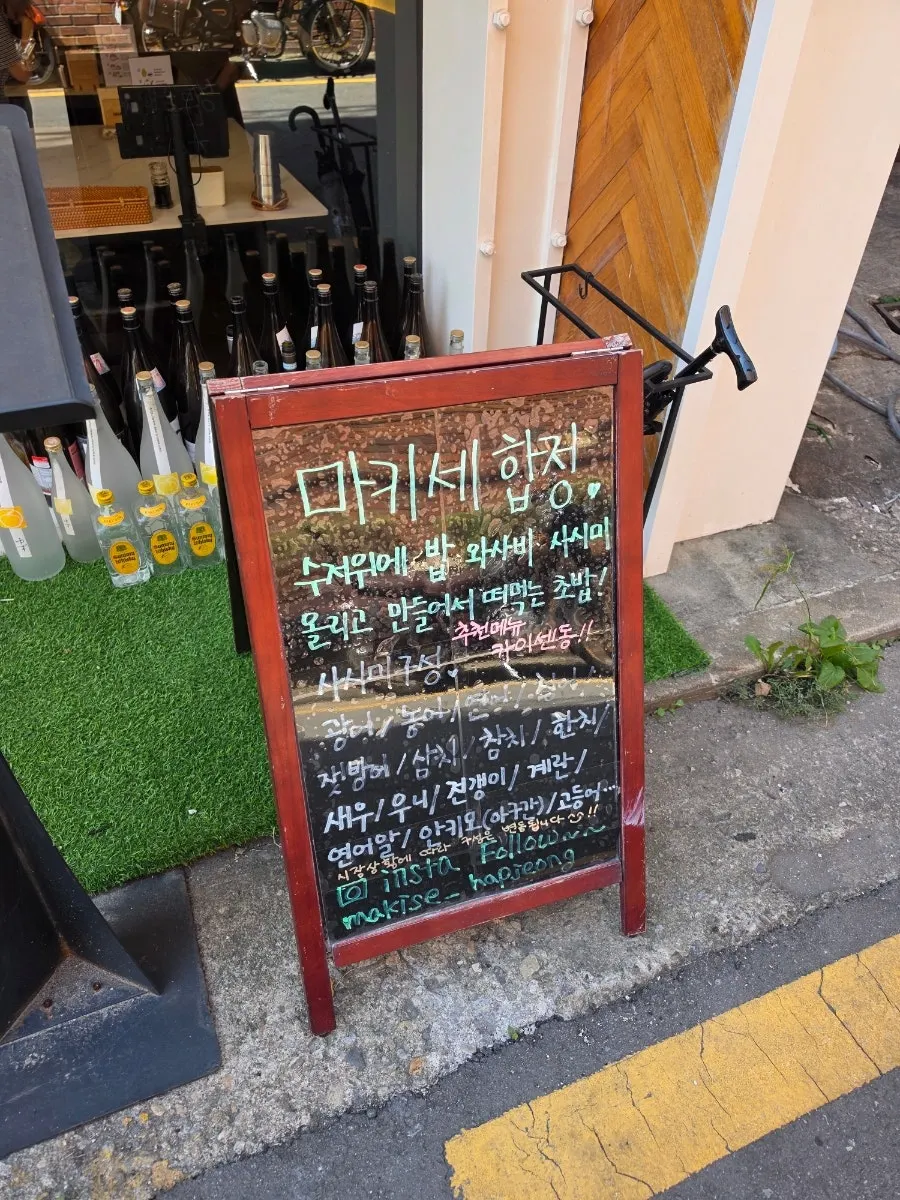 마키세 합정
수저위에 밥 와사비 사시미
올리고 만들어서 떠먹는 초밥!
추천메뉴
카이센동!!
사시미구성
광어/농어/연어/
잿방어/삼치/참치/한치/
새우/우니/전갱이/계란/
연어알/안키모(아구간)/고등어...
시장상황에 따라 구성은 변동됩니다!!
insta Follow~~
makise_hapjeong